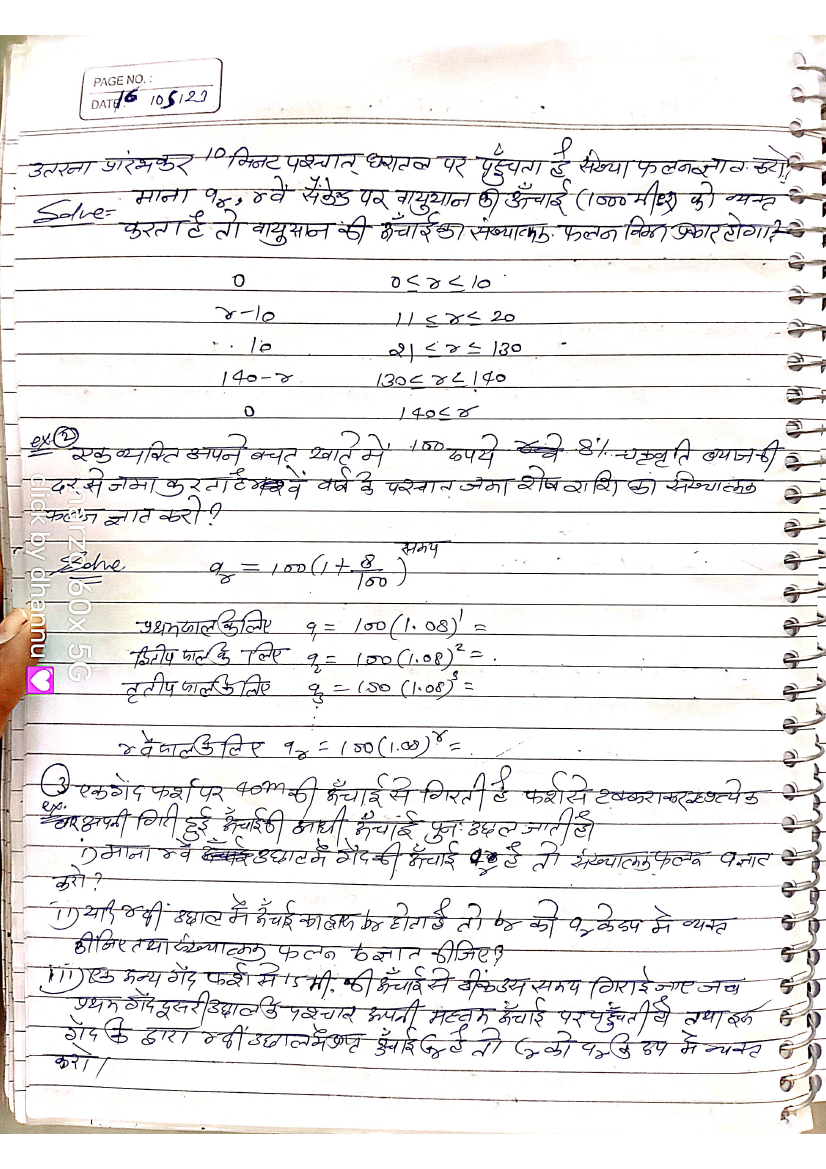 PAGE NO. :
DATE 16 105123
उतरना प्रारंभकर 10 मिनट पश्चात् धरातल पर पहुँचता है संख्या फलन ज्ञात करो?
Solve= माना aᵣ, rवें सैकेंड पर वायुयान की ऊँचाई (1000 मीटर) को व्यक्त
करता है तो वायुयान की ऊँचाई का संख्यात्मक फलन निम्न प्रकार होगा?
0 0 ≤ r ≤ 10
r-10 11 ≤ r ≤ 20
10 21 ≤ r ≤ 130
140-r 130 ≤ r ≤ 140
0 140 ≤ r
ex ② एक व्यक्ति अपने बचत खाते में 100 रुपये 8% चक्रवृति ब्याज की
दर से जमा करता है rवें वर्ष के पश्चात् जमा शेष राशि का संख्यात्मक
फलन ज्ञात करो?
Solve aᵣ = 100(1+ 8/100)^समय
प्रथम काल के लिए a₁ = 100(1.08)¹ =
द्वितीय काल के लिए a₂ = 100(1.08)² = .
तृतीय काल के लिए a₃ = 100(1.08)³ =
r वें काल के लिए aᵣ = 100(1.08)ʳ = .
③ एक गेंद फर्श पर 40m की ऊँचाई से गिरती है फर्श से टकराकर प्रत्येक
ex. बार अपनी गिरी हुई ऊँचाई की आधी ऊँचाई पुनः उछल जाती है।
i) माना rवें उछाल में गेंद की ऊँचाई aᵣ है तो संख्यात्मक फलन a ज्ञात
करो?
ii) यदि rवीं उछाल में ऊँचाई का ह्रास bᵣ होता है तो bᵣ को aᵣ के रूप में व्यक्त
कीजिए तथा संख्यात्मक फलन b ज्ञात कीजिए?
iii) एक अन्य गेंद फर्श से 15 मी. की ऊँचाई से ठीक उस समय गिराई जाए जब
प्रथम गेंद दूसरी उछाल के पश्चात अपनी महत्तम ऊँचाई पर पहुँचती है तथा इस
गेंद के द्वारा rवीं उछाल में प्राप्त ऊँचाई Cᵣ है तो Cᵣ को aᵣ के रूप में व्यक्त
करो।
narzo 60x 5G
click by dhannu